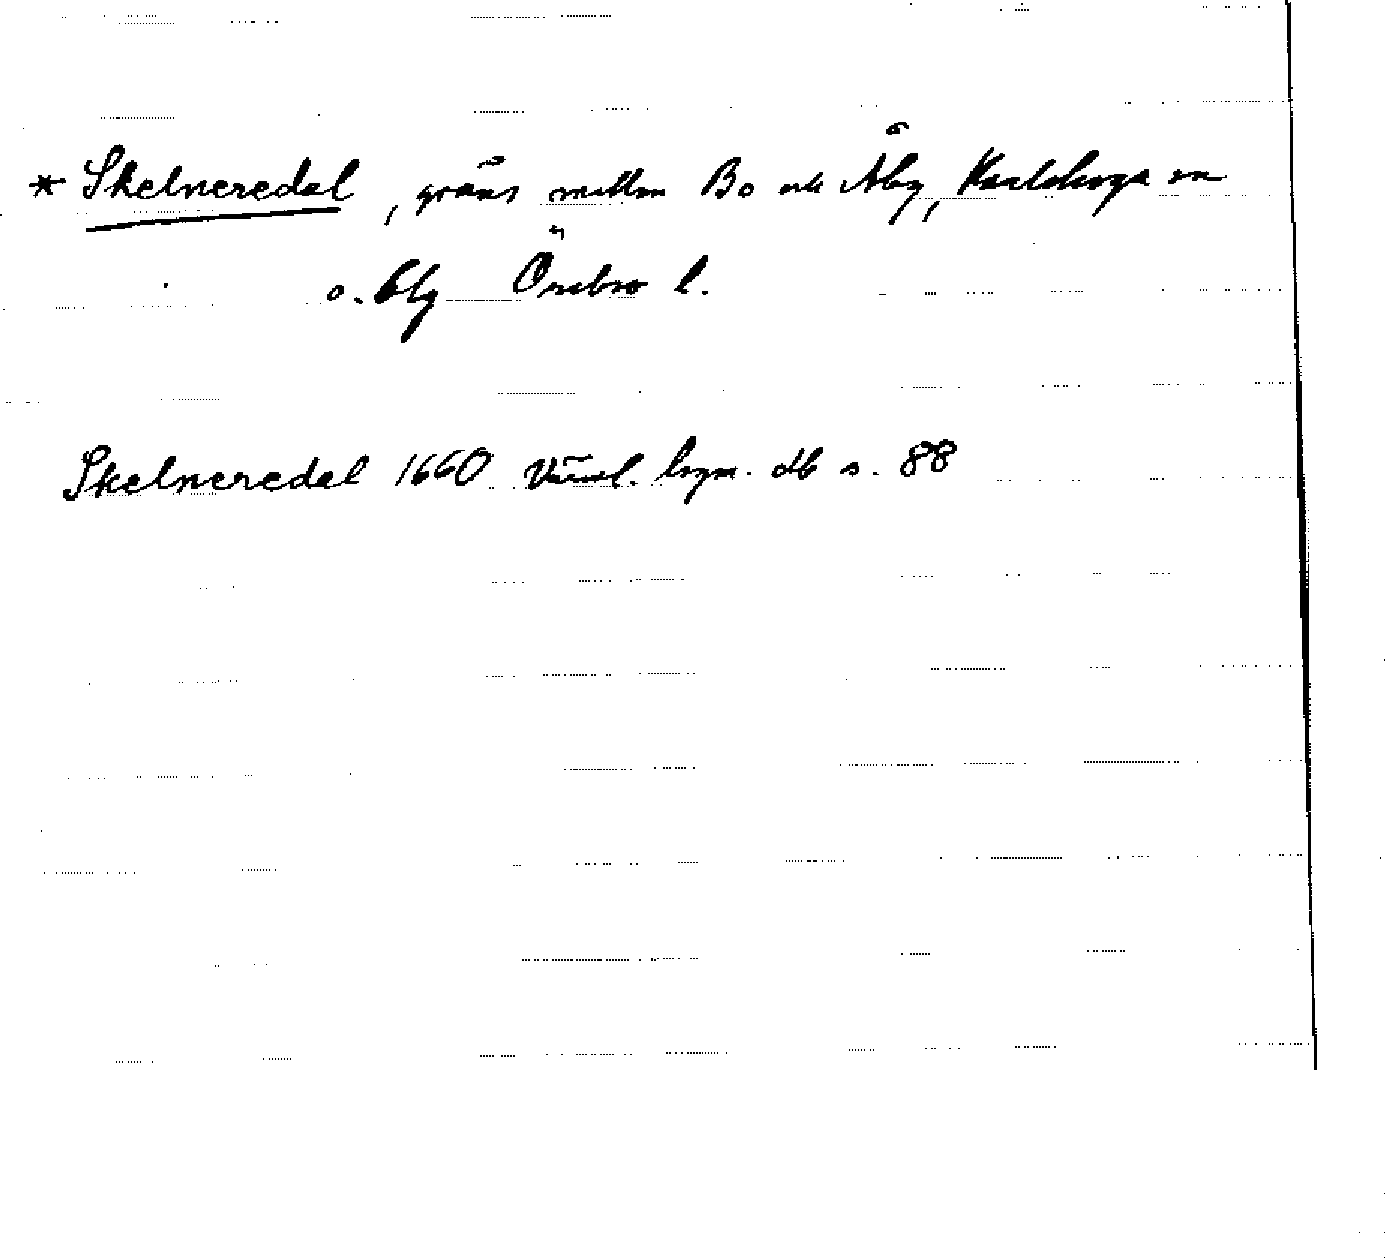 * Skelneredel, gräns mellan Bo och Åby, Karlskoga sn
o. blg Örebro l.
Skelneredel 1660 Värml. lagm. db s. 88